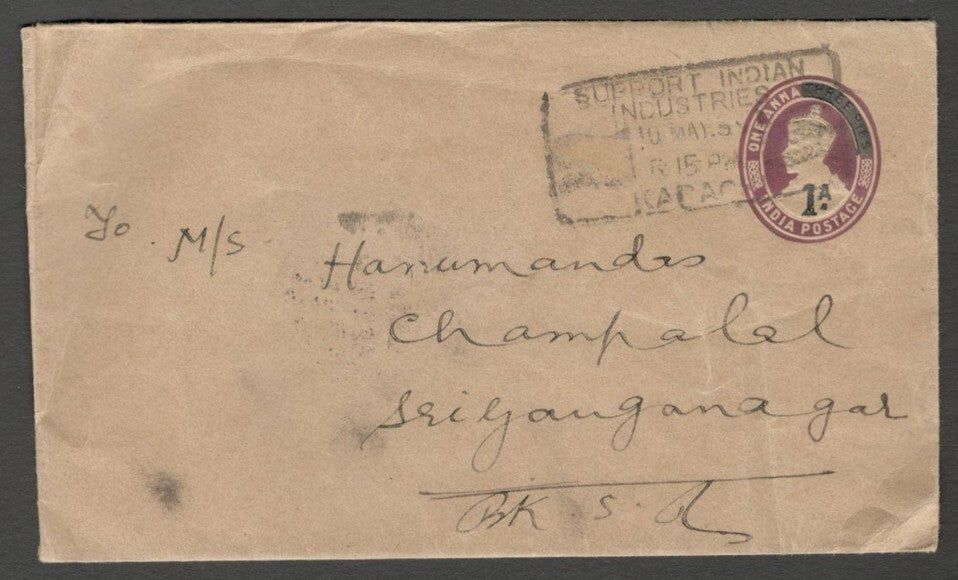 SUPPORT INDIAN
INDUSTRIES
10 MAY.
15 P
KARAC
ONE ANNA THREE PIES
1A.
INDIA POSTAGE
To. M/S Hanumandas
Champalal
Sriganganagar
BK. S. R